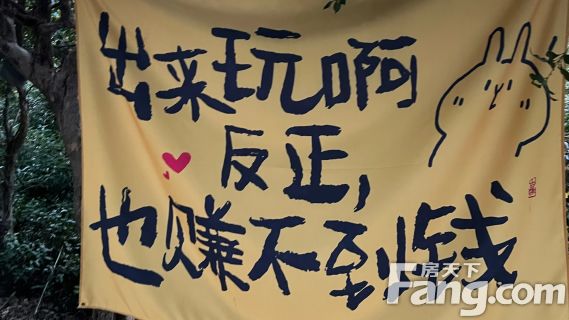 出来玩啊
反正,
也赚不到钱
房天下
Fang.com